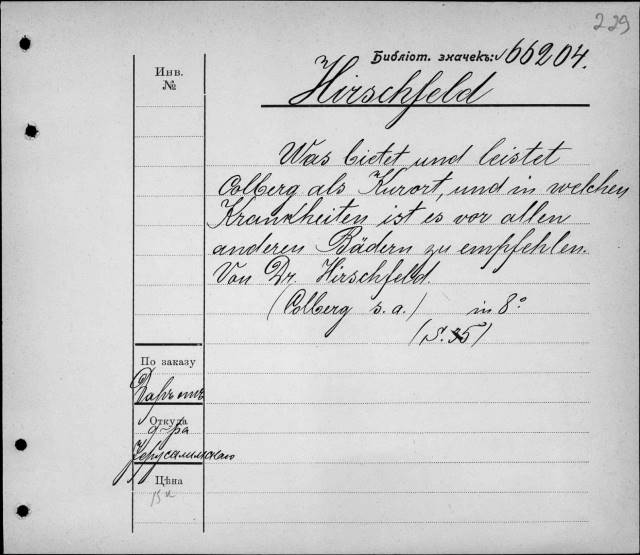 229
Библіот. значекъ: 66204.
Инв.
№
Hirschfeld
Was bietet und leistet
Colberg als Kurort, und in welchen
Krankheiten ist es vor allen
anderen Bädern zu empfehlen.
Von Dr. Hirschfeld.
(Colberg s. a.) in 8°
(S. 35)
По заказу
Даръ отъ
Откуда
д-ра
Іерусалимскаго
Цѣна